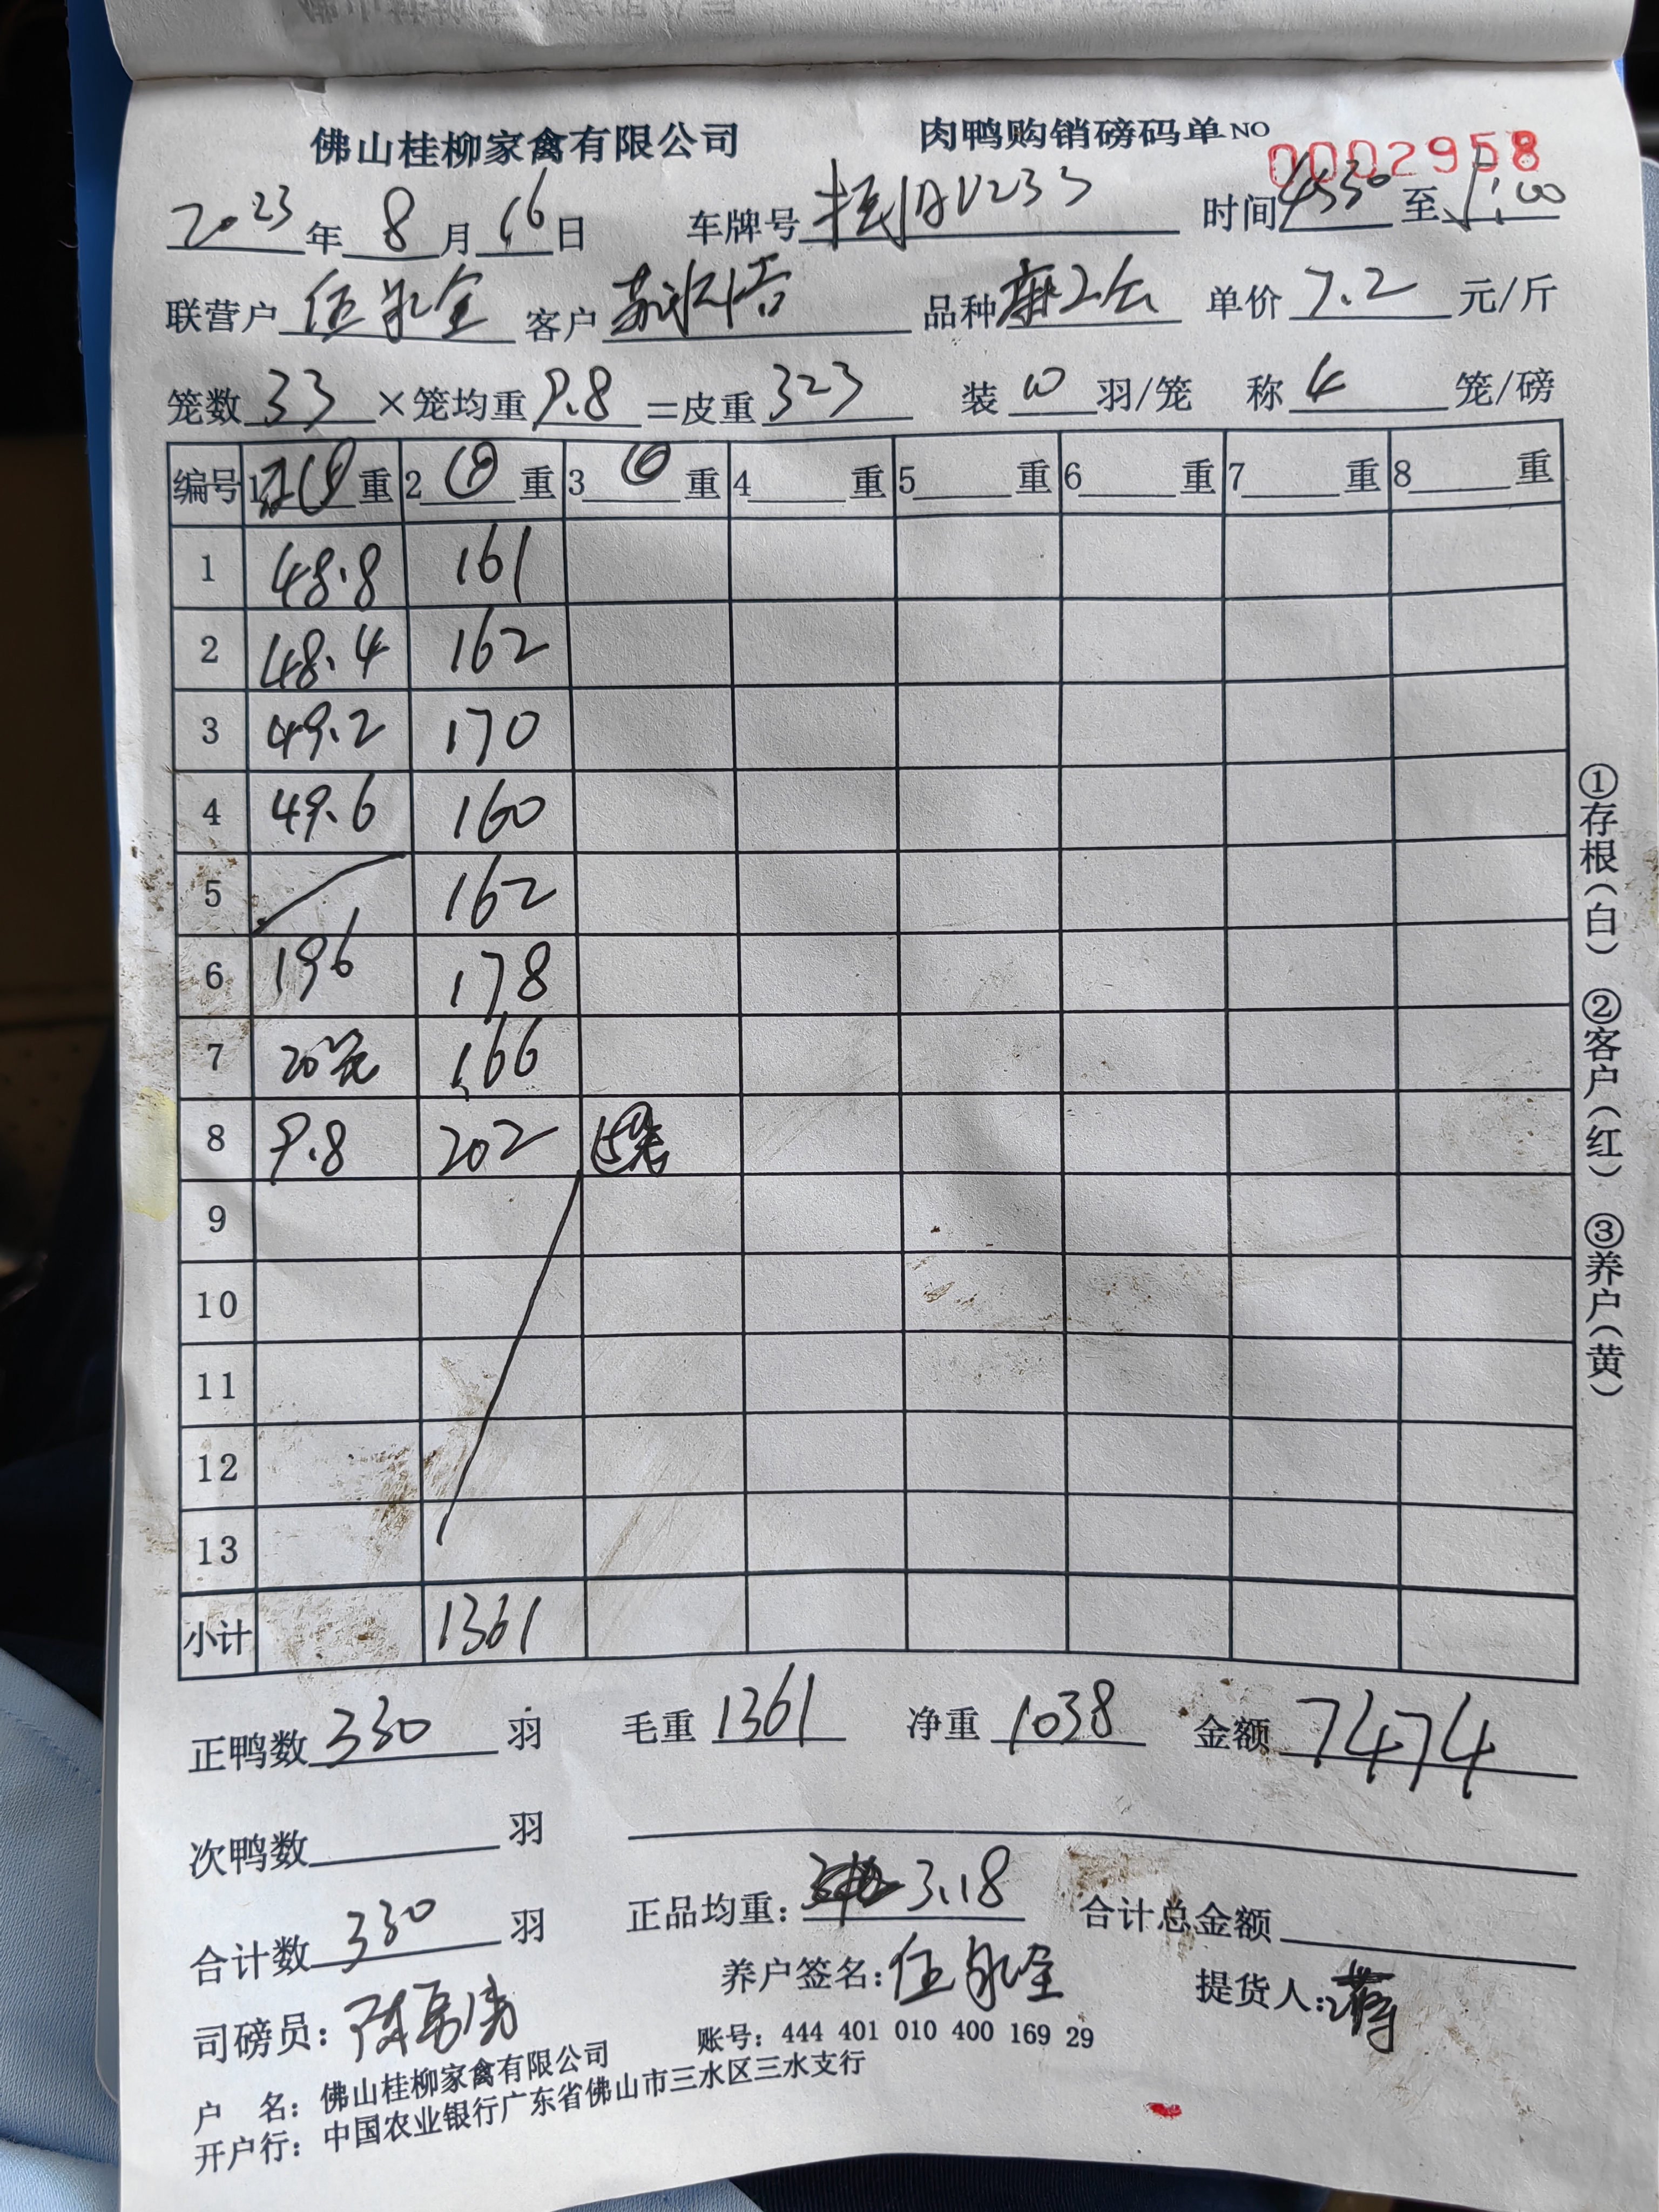 佛山桂柳家禽有限公司 肉鸭购销磅码单 NO 0002958
2023年 8月 16日 车牌号 V233 时间 4:30 至 1:00
联营户 伍永全 客户 苏 品种 麻2公 单价 7.2 元/斤
笼数 33 ×笼均重 9.8 =皮重 323 装 10 羽/笼 称 4 笼/磅
编号 1 重 2 重 3 重 4 重 5 重 6 重 7 重 8 重
1 48.8 161
2 48.4 162
3 49.2 170
4 49.6 160
5 162
6 196 178
7 20笼 166
8 9.8 202
9
10
11
12
13
小计 1361
①存根(白) ②客户(红) ③养户(黄)
正鸭数 330 羽 毛重 1361 净重 1038 金额 7474
次鸭数 羽
合计数 330 羽 正品均重: 3.18 合计总金额
司磅员: 陈 养户签名: 伍永全 提货人:
户 名: 佛山桂柳家禽有限公司 账号: 444 401 010 400 169 29
开户行: 中国农业银行广东省佛山市三水区三水支行